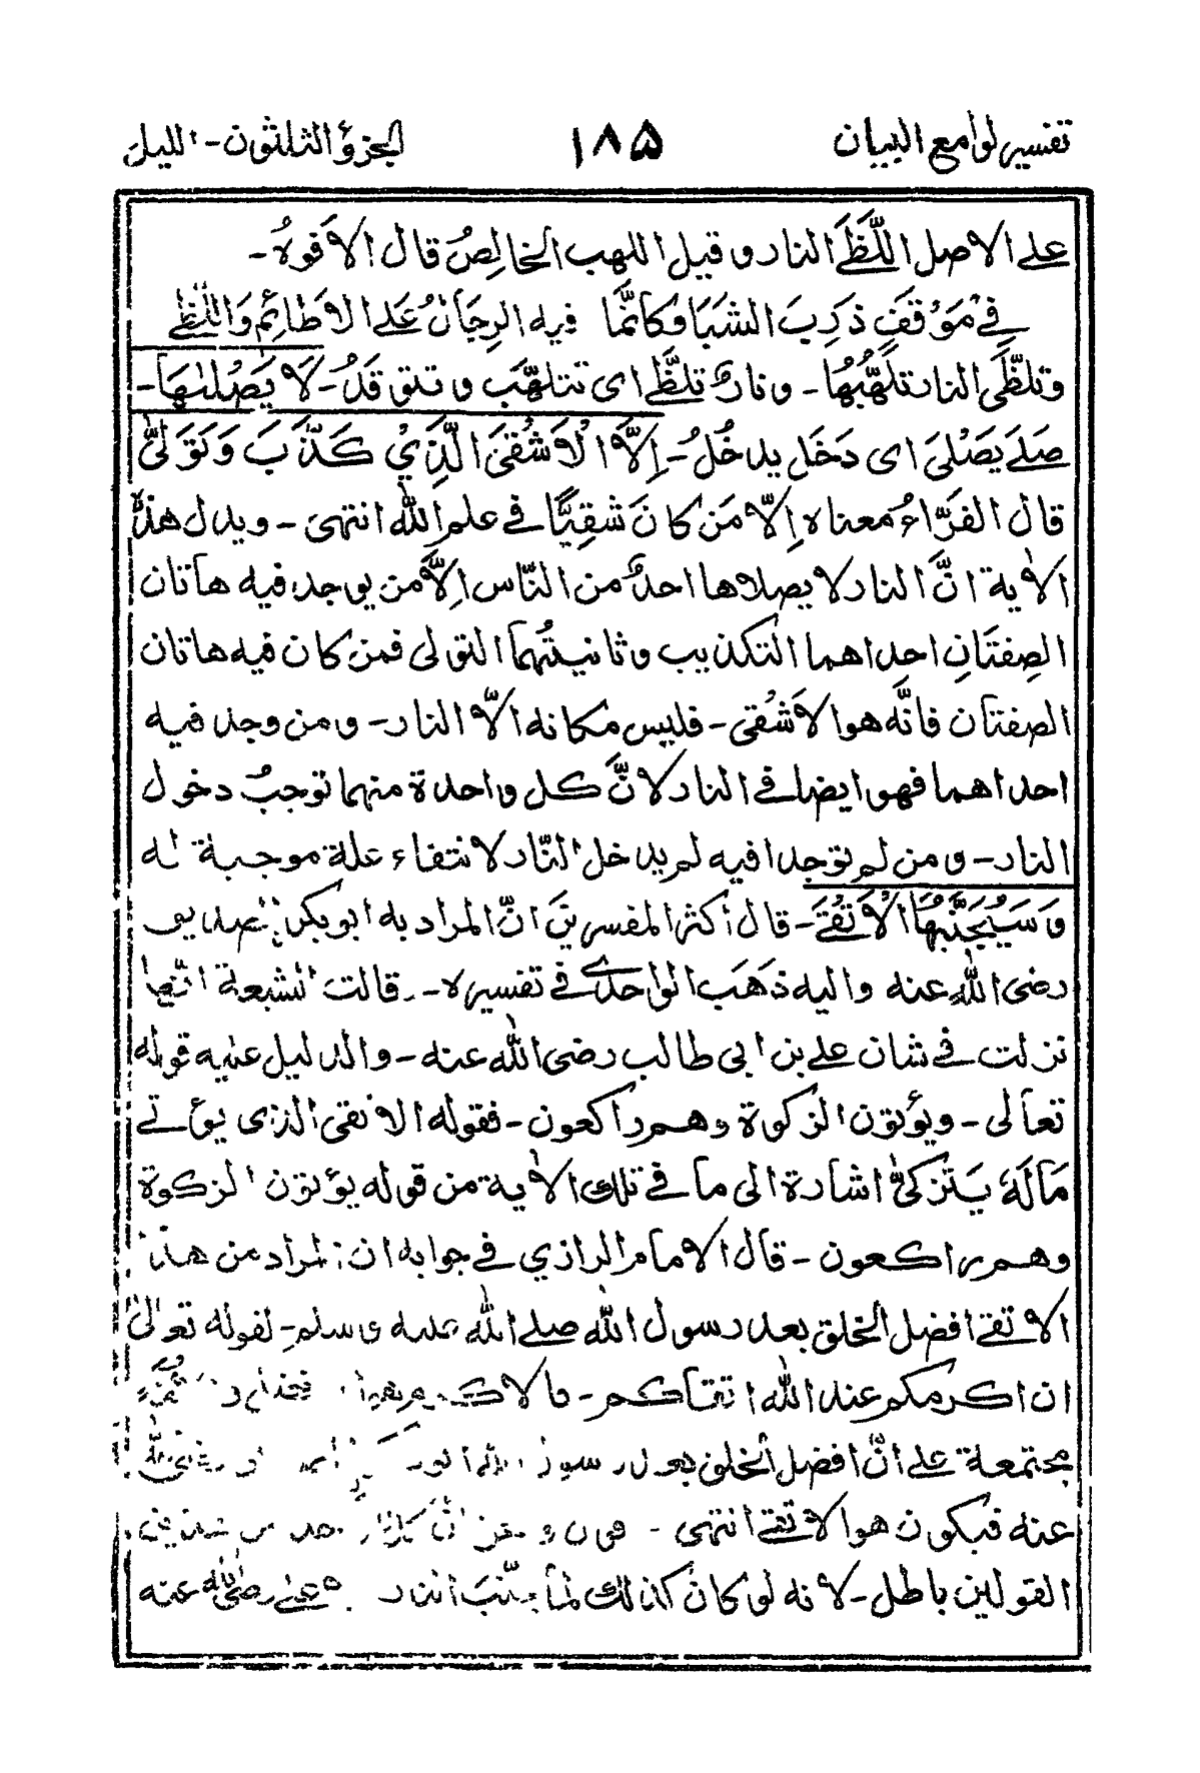 تفسير لوامع البيان ۱۸۵ الجزؤ الثلثون - الليل
على الاصل اللَّظَىٰ النار و قيل اللهب الخالِصُ قال الافوهُ -
فِي مَوْقَفٍ ذَرِبَ الشَبَا وَكَأنَّمَا فيه الرِجَالُ عَلى الاَطَائِمِ وَاللَّظٰى
وتَلظّى النار تلَهُّبُها - ونارٌ تلظّٰى اى تتلهّب و تتوقدُ - لَا يَصْلٰىهَا -
صَلَى يَصْلىَ اى دَخَل يدخُلُ - اِلَّا الْاَشْقَى الَّذِيْ كَذَّبَ وَتَوَلّٰى
قال الفَرَّاءُ معناه اِلّا مَن كانَ شقِيًّا في علم الله انتهىٰ - ويدل هذه
الاٰية انَّ النار لا يصلاها احدٌ من النّاس اِلَّا من يوجد فيه هاتان
الصِفتَانِ احداهما التكذيب وثانيتُهما التولى فمن كان فيه هاتان
الصفتان فانَّه هو الاَشْقى - فليس مكانه الّا النار - ومن وجد فيه
احداهما فهو ايضا في النار لانَّ كل واحدة منهما توجبُ دخول
النار - ومن لم توجدا فيه لم يدخل النّار لانتفاء علة موجبة له
وَسَيُجَنَّبُهَا الْاَتْقَى - قال أكثر المفسرينَ انّ المراد به ابو بكر
رضى الله عنه واليه ذَهَب الواحدي في تفسيره - قالت الشيعة انّها
نزلت في شان على بن ابى طالب رضى الله عنه - والدليل عليه قوله
تعالى - ويؤتون الزكوة وهم راكعون - فقوله الاتقى الذى يؤتى
مَالَهٗ يَتَزَكّٰى اشارة الى ما فى تلك الاٰية من قوله يؤتون الزكوة
وهم راكعون - قال الامام الرازي في جوابه ان المراد من هذا
الاتقى افضل الخلق بعد رسول الله صلى الله عليه وسلم - لقوله تعالىٰ
ان اكرمكم عند الله اتقاكم -
مجتمعة على انّ افضل الخلق بعد رسول الله
عنه فيكون هو الاتقى انتهى -
القولين باطل - لانه لو كان كذلك لما النار على رضى الله عنه